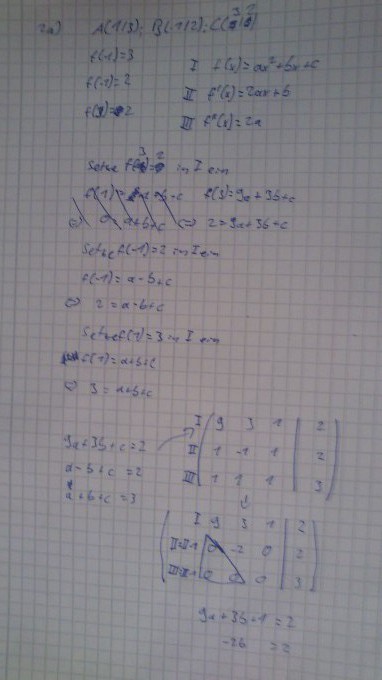 2a) A(1|3); B(-1|2); C(3|2)
f(-1)=3 I f(x)=ax²+bx+c
f(-1)=2 II f'(x)=2ax+b
f(3)=2 III f''(x)=2a
Setze f(3)=2 in I ein
f(3)=9a+3b+c
⇔ a+b+c ⇔ 2=9a+3b+c
Setze f(-1)=2 in I ein
f(-1)=a-b+c
⇔ 2=a-b+c
Setze f(1)=3 in I ein
f(1)=a+b+c
⇔ 3=a+b+c
I 9 3 1 | 2
9a+3b+c=2 II 1 -1 1 | 2
a-b+c=2 III 1 1 1 | 3
a+b+c=3
I 9 3 1 | 2
0 -2 0 | 2
0 0 0 | 3
9a+3b+1=2
-2b =2